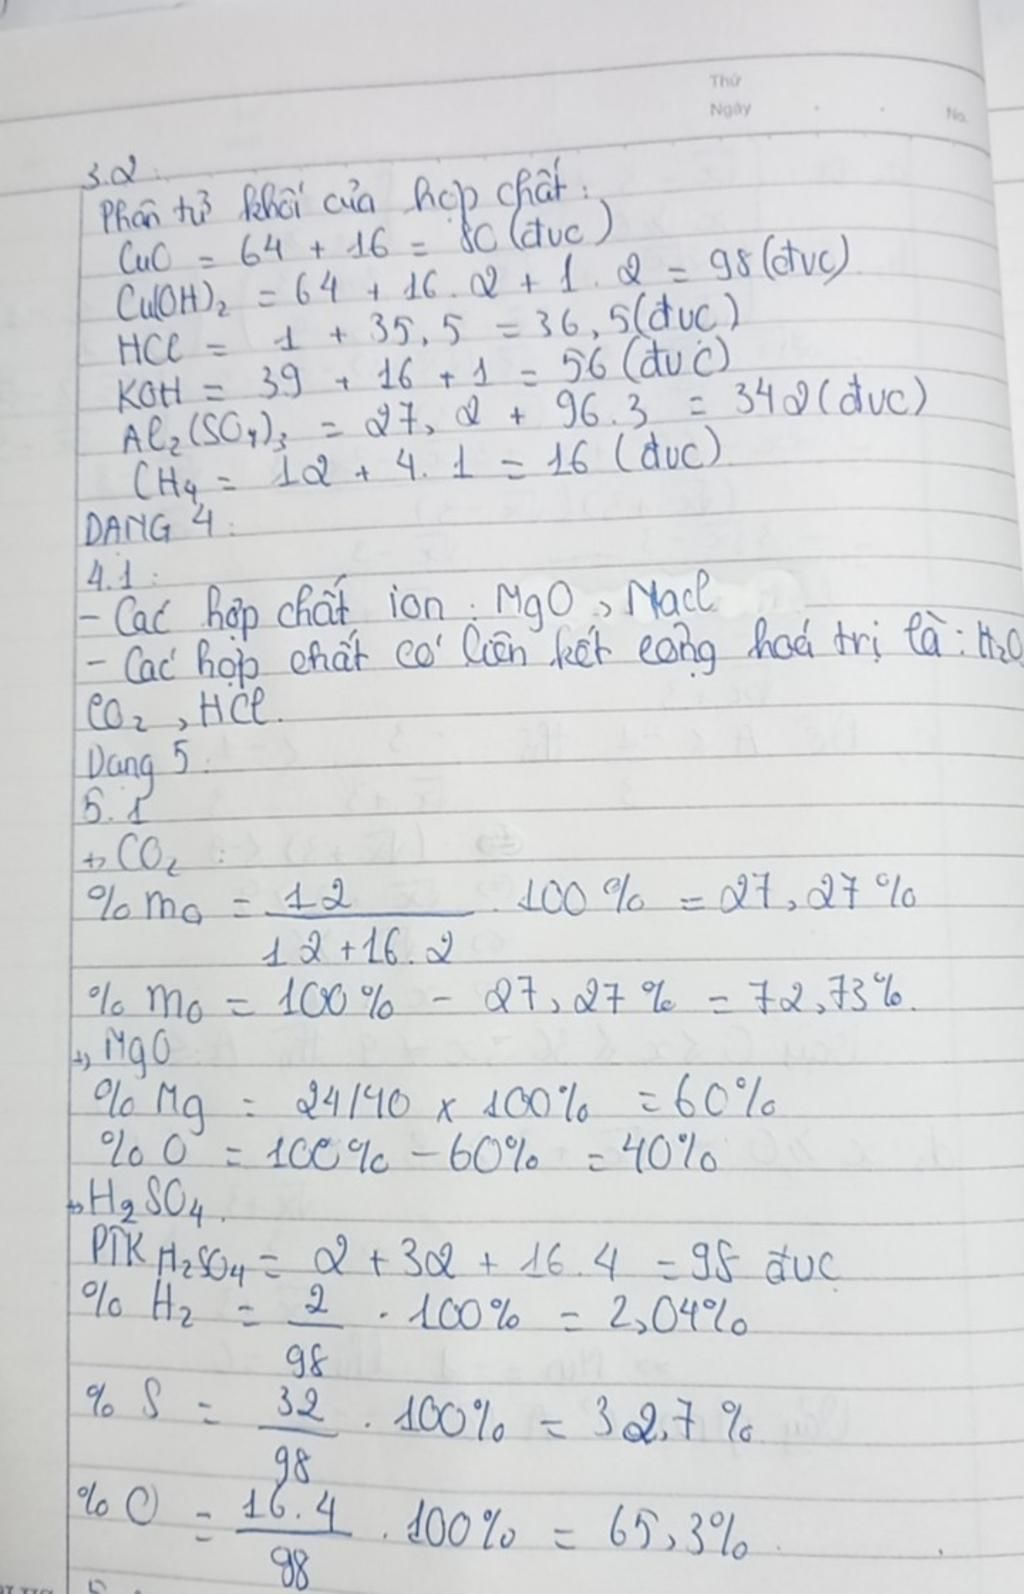 Thứ
Ngày
No.
3.2:
Phân tử khối của hợp chất:
CuO = 64 + 16 = 80 (đvc)
Cu(OH)₂ = 64 + 16.2 + 1.2 = 98 (đvc)
HCl = 1 + 35,5 = 36,5(đvc)
KOH = 39 + 16 + 1 = 56 (đvc)
Al₂(SO₄)₃ = 27.2 + 96.3 = 342 (đvc)
CH₄ = 12 + 4.1 = 16 (đvc)
DANG 4:
4.1:
- Các hợp chất ion: MgO, NaCl
- Các hợp chất có liên kết cộng hoá trị là: H₂O
CO₂, HCl.
Dang 5.
5.1
+, CO₂:
% mC = 12/(12+16.2) . 100% = 27,27%
% mO = 100% - 27,27% = 72,73%.
+, MgO
% Mg = 24/40 x 100% = 60%
% O = 100% - 60% = 40%
+, H₂SO₄.
PTK H₂SO₄ = 2 + 32 + 16.4 = 98 đvc
% H₂ = 2/98 . 100% = 2,04%
% S = 32/98 . 100% = 32,7%
% O = 16.4/98 . 100% = 65,3%